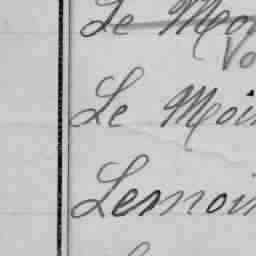 Le Mo
Vo
Le Moin
Lemoin